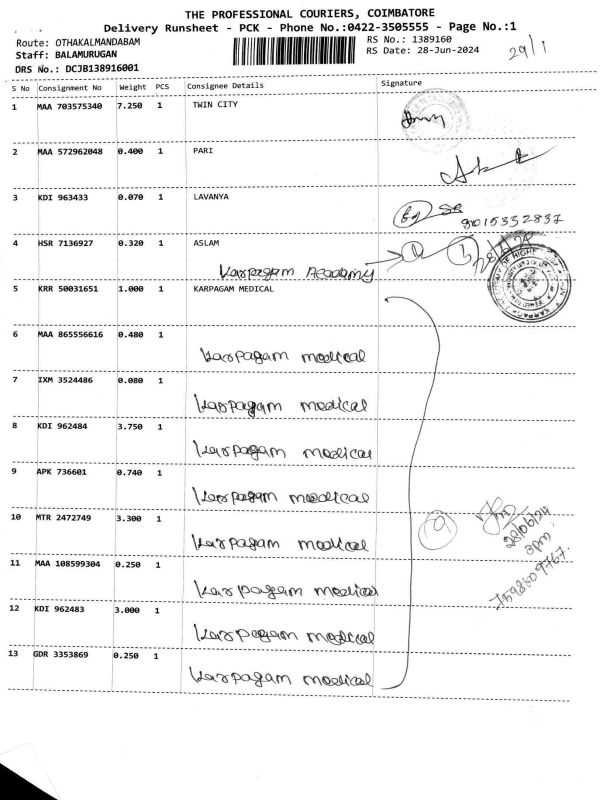 THE PROFESSIONAL COURIERS, COIMBATORE
Delivery Runsheet - PCK - Phone No.:0422-3505555 - Page No.:1
Route: OTHAKALMANDABAM RS No.: 1389160
Staff: BALAMURUGAN RS Date: 28-Jun-2024 29/1
DRS No.: DCJB138916001
S No Consignment No Weight PCS Consignee Details Signature
1 MAA 703575340 7.250 1 TWIN CITY
2 MAA 572962048 0.400 1 PARI
3 KDI 963433 0.070 1 LAVANYA
9015332837
4 HSR 7136927 0.320 1 ASLAM
Karpagam Academy
5 KRR 50031651 1.000 1 KARPAGAM MEDICAL
6 MAA 865556616 0.480 1
Karpagam medical
7 IXM 3524486 0.080 1
Karpagam medical
8 KDI 962484 3.750 1
Karpagam medical
9 APK 736601 0.740 1
Karpagam medical
10 MTR 2472749 3.300 1
Karpagam medical
28/06/24
3pm
7598509767
11 MAA 108599304 0.250 1
Karpagam medical
12 KDI 962483 3.000 1
Karpagam medical
13 GDR 3353869 0.250 1
Karpagam medical